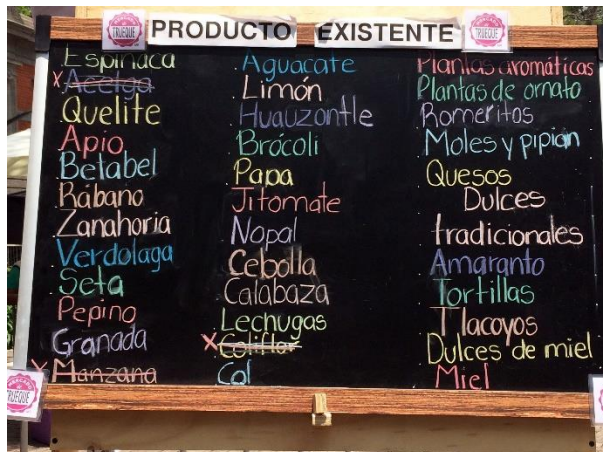 TRUEQUE
PRODUCTO EXISTENTE
TRUEQUE
Espinaca
x Acelga
Quelite
Apio
Betabel
Rábano
Zanahoria
Verdolaga
Seta
Pepino
Granada
x Manzana
.Aguacate
.Limón
.Huauzontle
.Brócoli
.Papa
.Jitomate
.Nopal
.Cebolla
.Calabaza
.Lechugas
x Coliflor
.Col
.Plantas aromáticas
.Plantas de ornato
.Romeritos
.Moles y pipian
.Quesos
.Dulces
tradicionales
.Amaranto
.Tortillas
.Tlacoyos
.Dulces de miel
.Miel
TRUEQUE